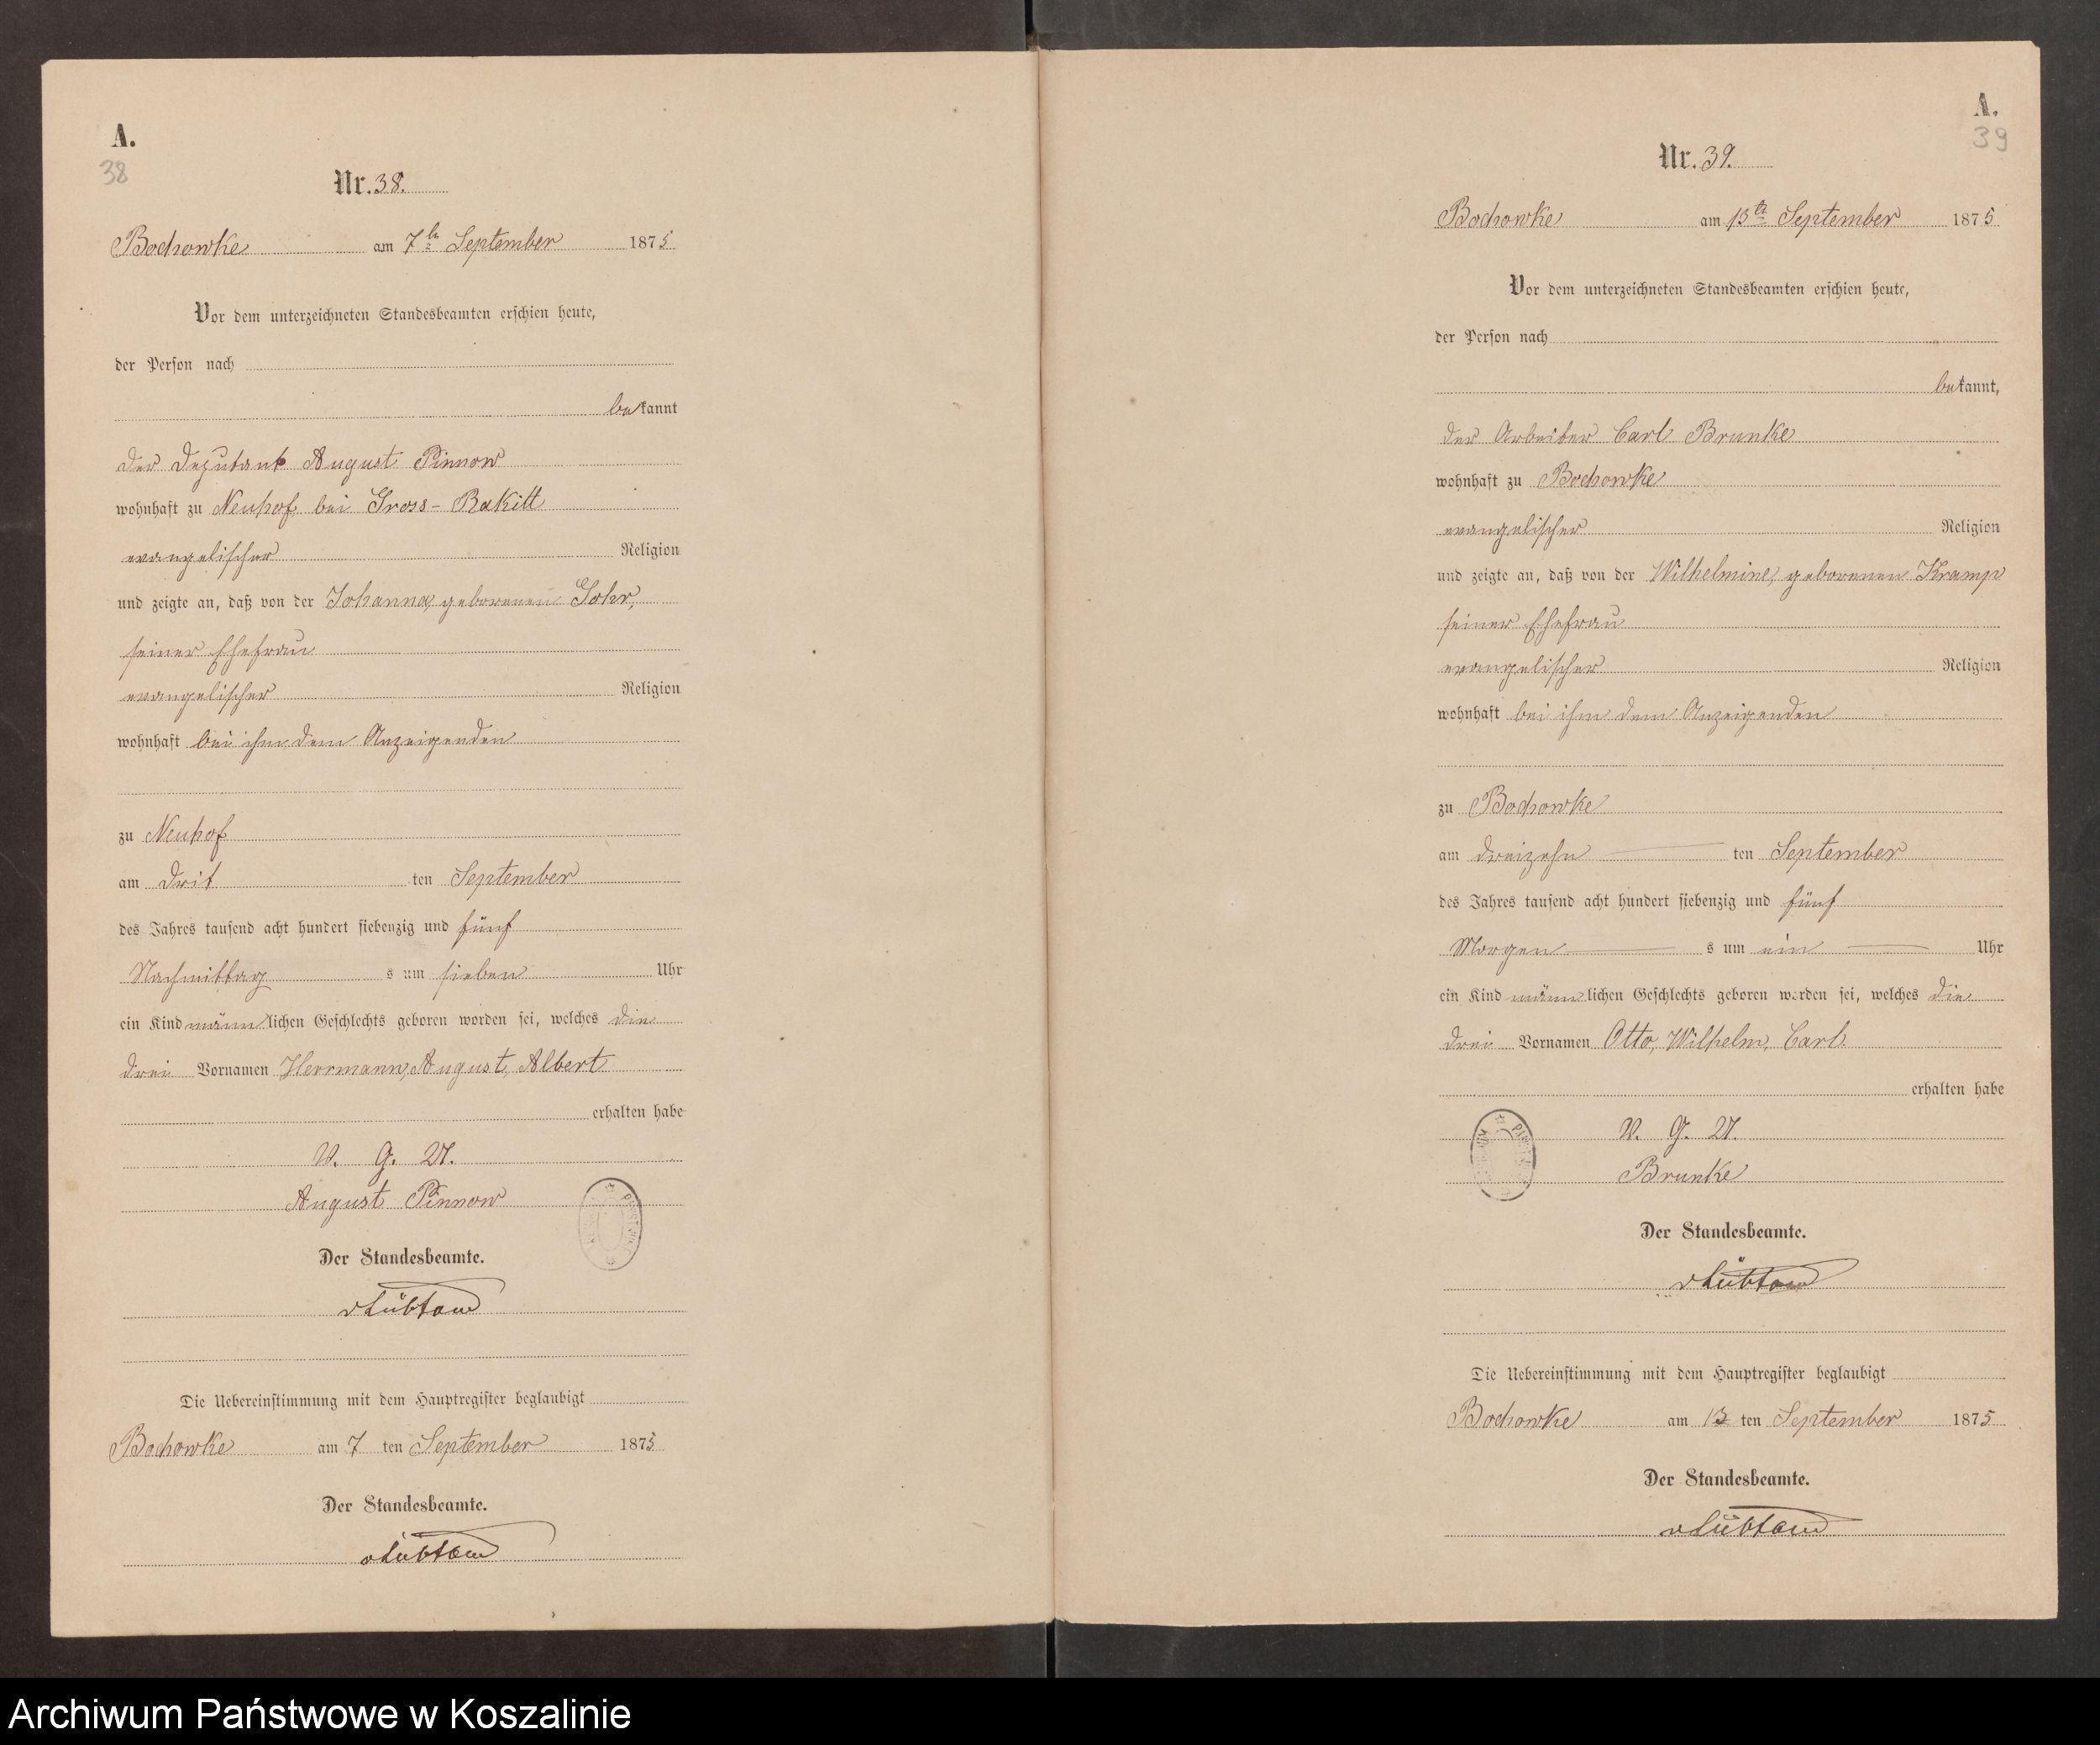 A.
38
Nr. 38.
Bochowke am 7ten September 1875
Vor dem unterzeichneten Standesbeamten erschien heute,
der Person nach
bekannt
der Deputant August Pinnow
wohnhaft zu Neuhof bei Gross-Rakitt
evangelischer Religion
und zeigte an, daß von der Johanna, geborenen Gohr,
seiner Ehefrau
evangelischer Religion
wohnhaft bei ihm dem Anzeigenden
zu Neuhof
am drit ten September
des Jahres tausend acht hundert siebenzig und fünf
Nachmittag s um sieben Uhr
ein Kind männlichen Geschlechts geboren worden sei, welches die
drei Vornamen Herrmann, August, Albert
erhalten habe
V. G. U.
August Pinnow
Der Standesbeamte.
vLübtow
Die Uebereinstimmung mit dem Hauptregister beglaubigt
Bochowke am 7 ten September 1875
Der Standesbeamte.
vLübtow
A.
39
Nr. 39.
Bochowke am 13ten September 1875
Vor dem unterzeichneten Standesbeamten erschien heute,
der Person nach
bekannt,
der Arbeiter Carl Brunke
wohnhaft zu Bochowke
evangelischer Religion
und zeigte an, daß von der Wilhelmine, geborenen Kramp
seiner Ehefrau
evangelischer Religion
wohnhaft bei ihm dem Anzeigenden
zu Bochowke
am dreizehn ten September
des Jahres tausend acht hundert siebenzig und fünf
Morgen s um ein Uhr
ein Kind männlichen Geschlechts geboren worden sei, welches die
drei Vornamen Otto, Wilhelm, Carl
erhalten habe
V. G. U.
Brunke
Der Standesbeamte.
vLübtow
Die Uebereinstimmung mit dem Hauptregister beglaubigt
Bochowke am 13 ten September 1875
Der Standesbeamte.
vLübtow
Archiwum Państwowe w Koszalinie